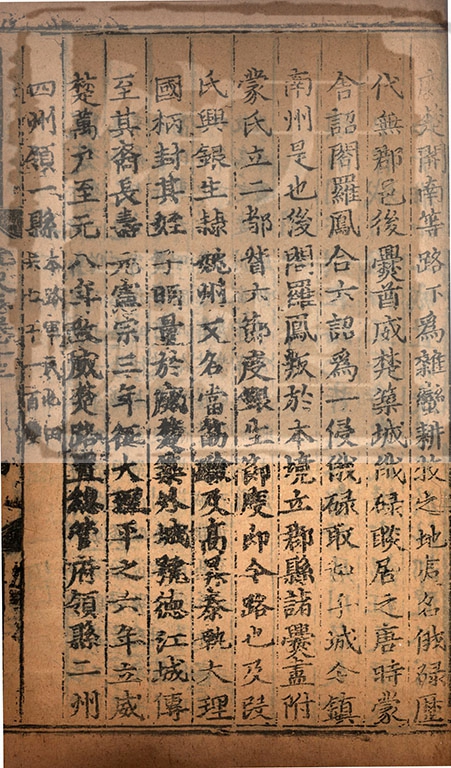 威楚開南等路下為雜蠻耕牧之地夷名俄碌歷
代無郡邑後爨酋威楚築城俄碌睒居之唐時蒙
舍詔閤羅鳳合六詔為一侵俄碌取和子城今鎮
南州是也後閤羅鳳叛於本境立郡縣諸爨盡附
蒙氏立二都督六節度銀生節度即今路也及段
氏興銀生隷姚州又名當筯瞼及高昇泰執大理
國柄封其姪子明量於威楚築外城號德江城傳
至其裔長壽元憲宗三年征大理平之六年立威
楚萬戶至元八年改威楚路置總管府領縣二州
四州領一縣本路軍民屯田
共七千一百雙